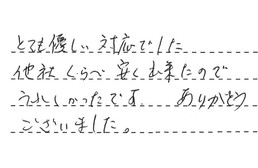 とても優しい対応でした
他社くらべ安く出来たので
うれしかったです　ありがとう
ございました。